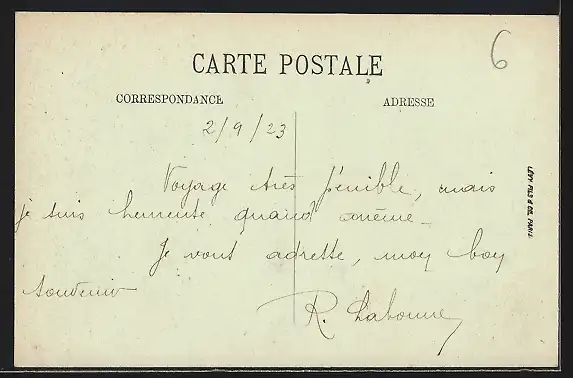 6
CARTE POSTALE
CORRESPONDANCE
ADRESSE
2/9/23
Voyage très pénible, mais
je suis heureuse quand même
Je vous adresse, mon bon
souvenir
R. Labonne
LÉVY FILS & CIE, PARIS.